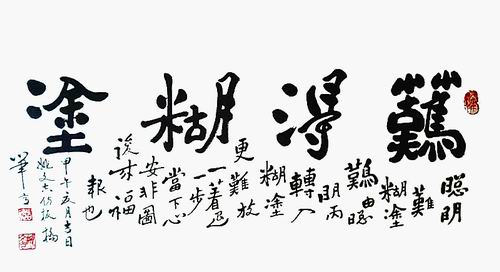 難得糊塗
聰明
難
糊塗
難由聰
明而
轉入
糊塗
更難放
一着退
一步
當下心
安非圖
後来福
報也
甲午五月吉日
姚文仿板橋
筆意